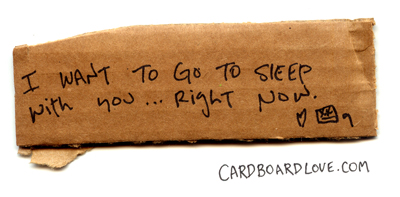 I WANT TO GO TO SLEEP
with you... Right NOW.
CARDBOARDLOVE.COM